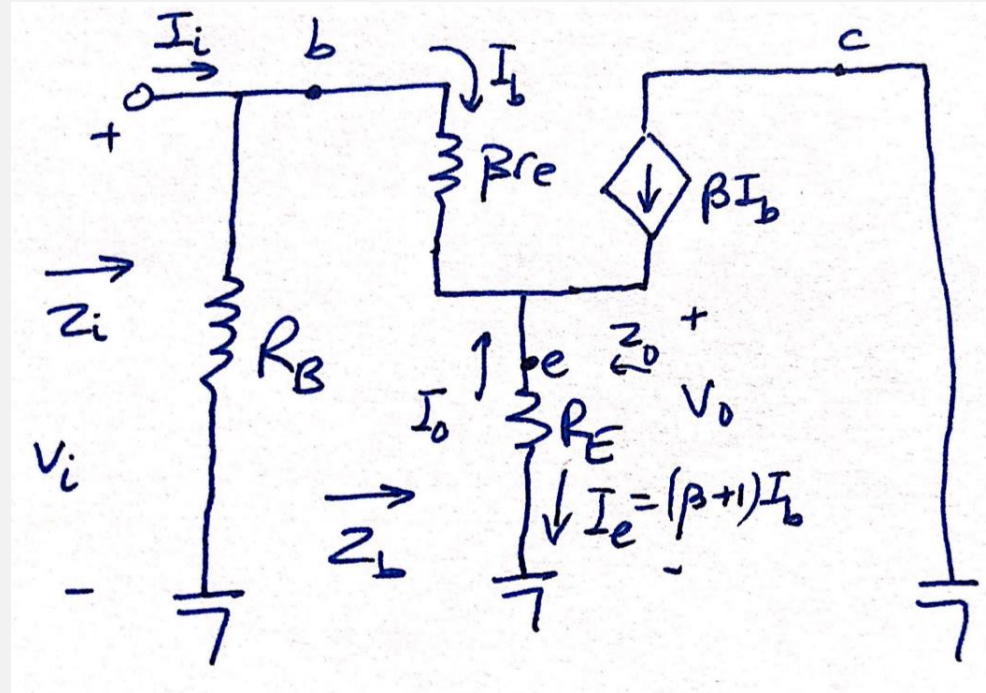 Ii
b
Ib
c
+
βre
βIb
Zi
RB
Io
e
Zo
+
Vo
RE
Vi
Zb
Ie=(β+1)Ib
-
-